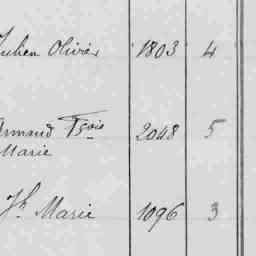 Julien Olivier 1803 4
Armand Fçois 2048 5
Marie
Jh Marie 1096 3